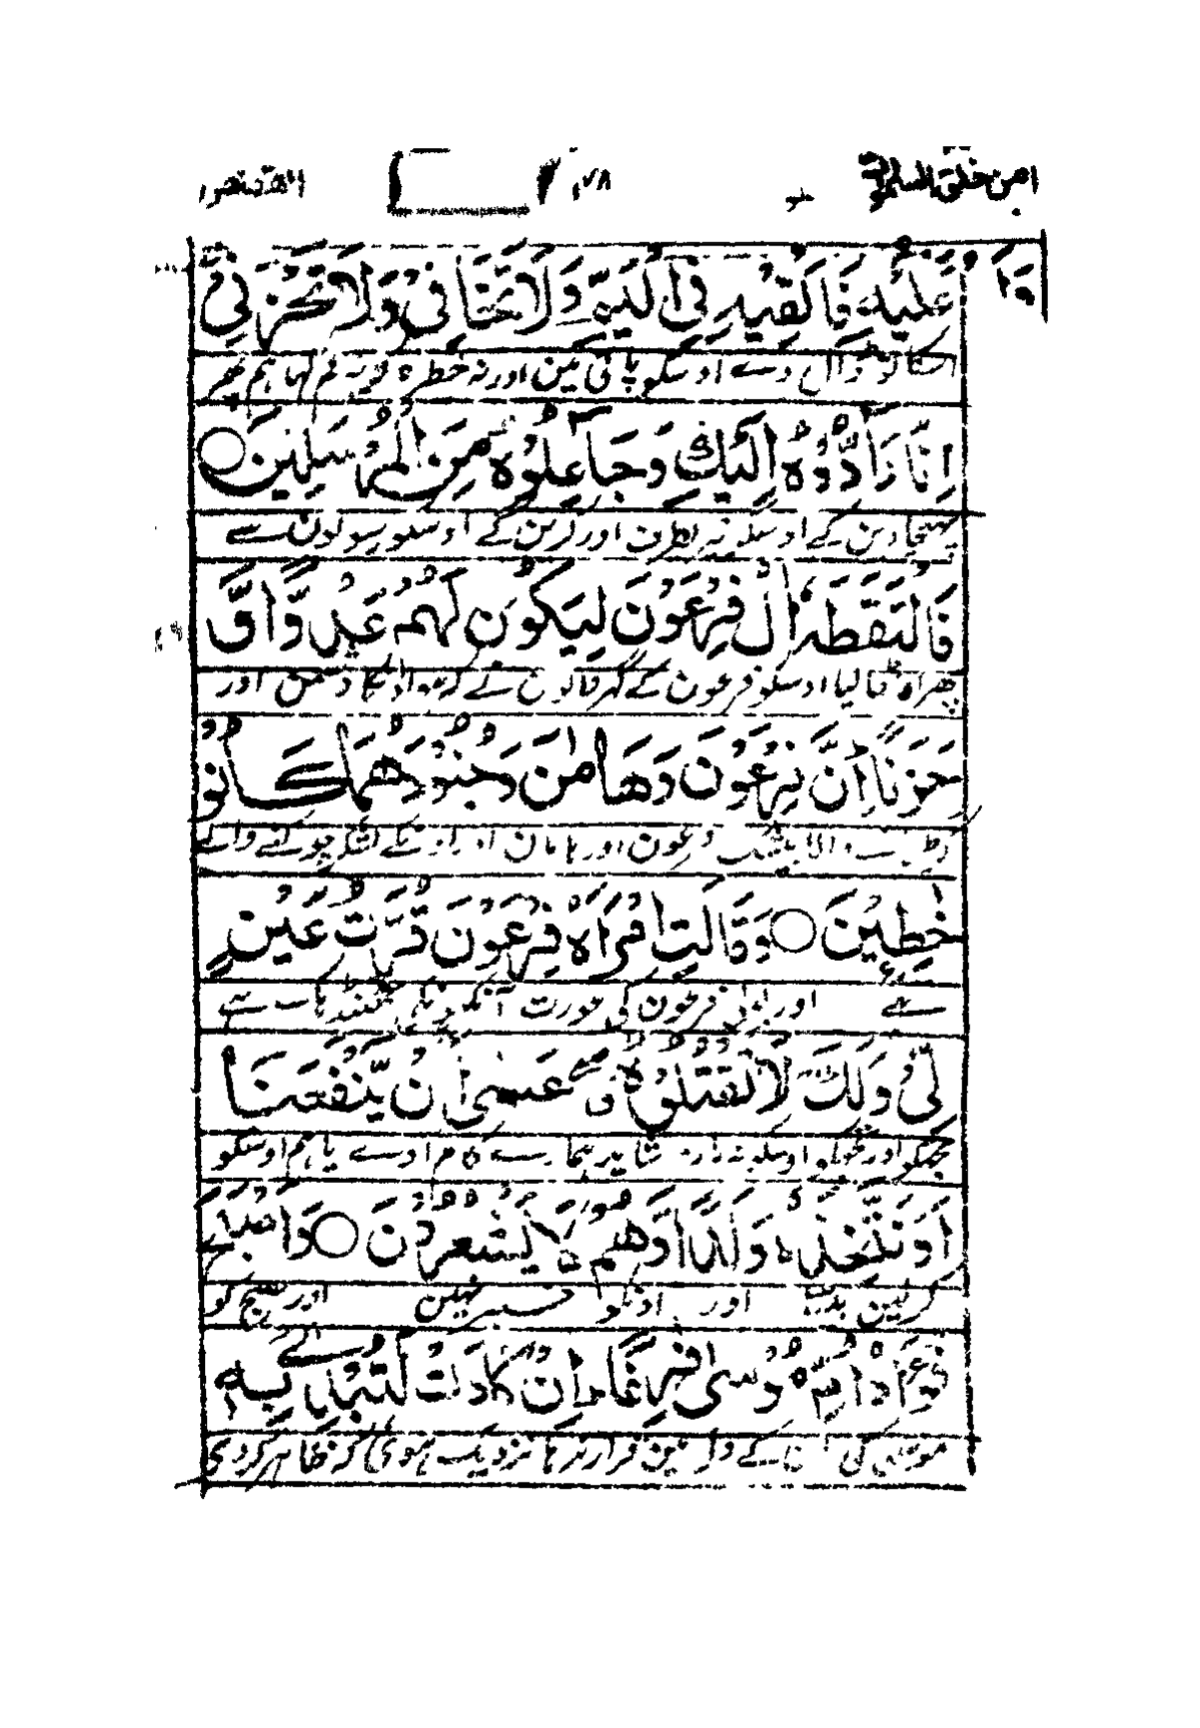 امن خلق السموٰت ۲۰ القصص
عَلَيْهِ فَاَلْقِيْهِ فِى الْيَمِّ وَلَا تَخَافِىْ وَلَا تَحْزَنِىْ
ڈال دے اوسکو پانی مین اور نہ خطرہ ہم پھر
اِنَّا رَآدُّوْهُ اِلَيْكِ وَجَاعِلُوْهُ مِنَ الْمُرْسَلِيْنَ
پہنچا دین گے اوسکو تیری طرف اور کرین گے اوسکو رسولون سے
فَالْتَقَطَهٗ اٰلُ فِرْعَوْنَ لِيَكُوْنَ لَهُمْ عَدُوًّا وَّ
پھر اٹھا لیا اوسکو فرعون کے گھر والون نے کہ ہو اونکا دشمن اور
حَزَنًا اِنَّ فِرْعَوْنَ وَهَامٰنَ وَجُنُوْدَهُمَا كَانُوْا
بیشک فرعون اور ہامان اور اونکے لشکر چوکنے والے
خٰطِئِيْنَ وَقَالَتِ امْرَاَةُ فِرْعَوْنَ قُرَّتُ عَيْنٍ
تھے اور بولی فرعون کی عورت آنکھونکی ٹھنڈک ہے
لِّىْ وَلَكَ لَا تَقْتُلُوْهُ عَسٰٓى اَنْ يَّنْفَعَنَا
مجھکو اور تجھکو اوسکو نہ مارو شاید ہمارے کام آوے یا ہم اوسکو
اَوْ نَتَّخِذَهٗ وَلَدًا وَّهُمْ لَا يَشْعُرُوْنَ وَاَصْبَحَ
کرلین بیٹا اور اونکو خبر نہین اور صبح کو
فُؤَادُ اُمِّ مُوْسٰى فٰرِغًا اِنْ كَادَتْ لَتُبْدِىْ بِهٖ
موسی کی مان کے دل مین قرار نرہا نزدیک ہوئی کہ ظاہر کردی